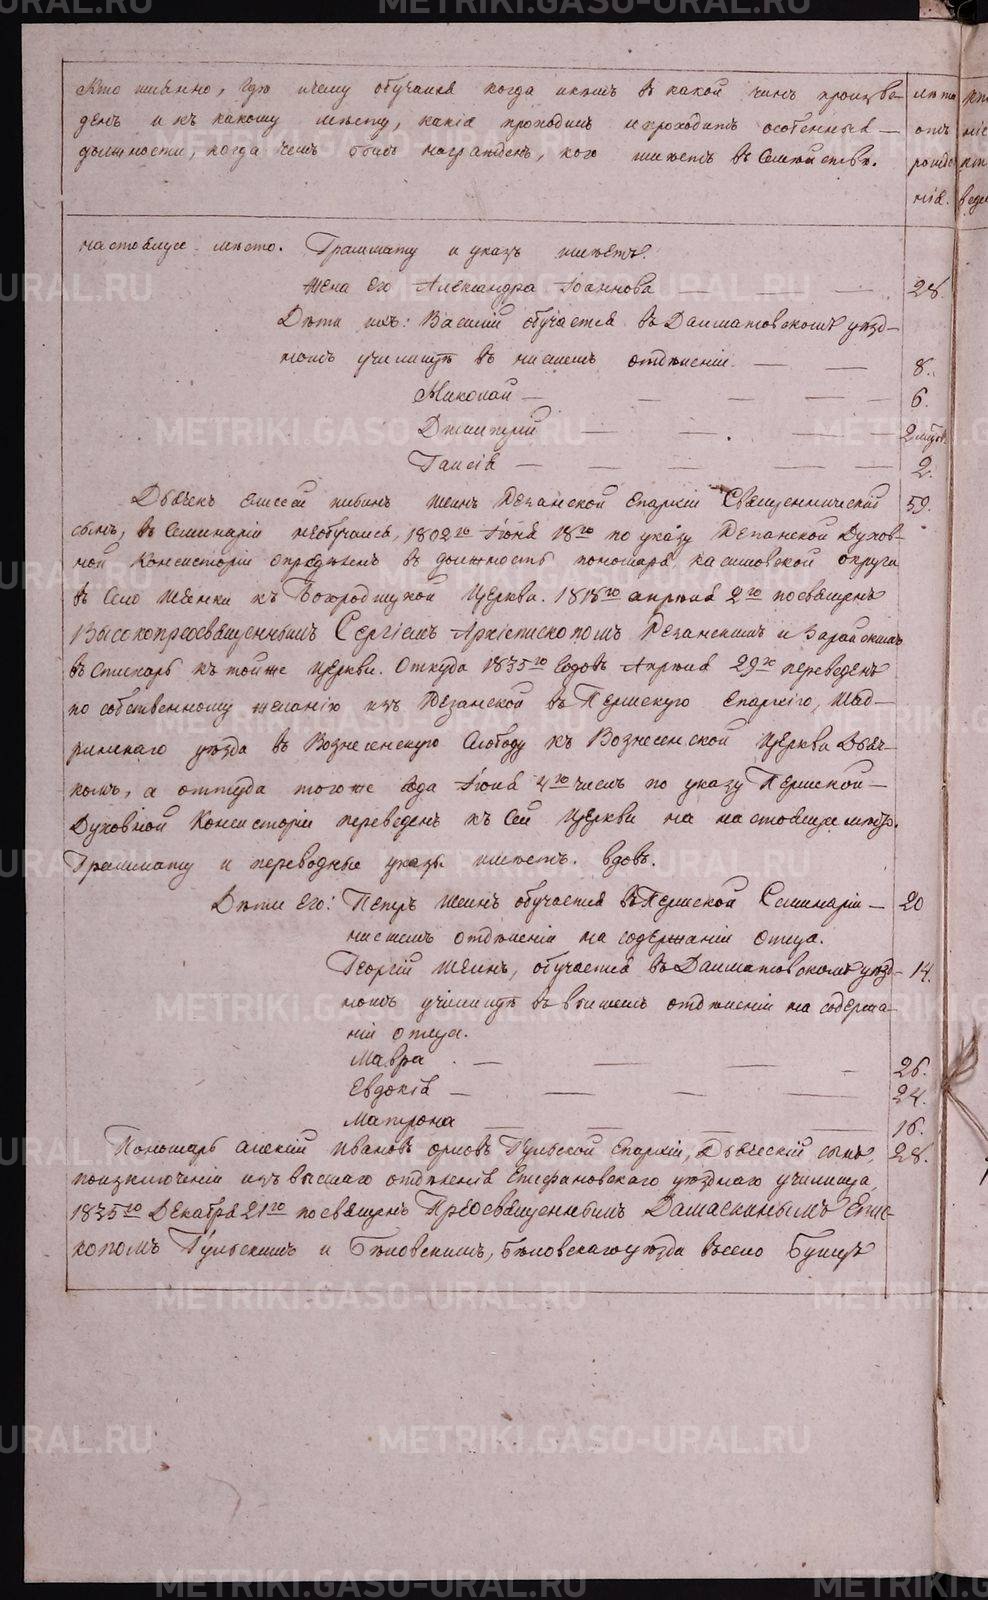 Кто именно, где и чему обучался когда и кемъ въ какой чинъ произве-
денъ и къ какому мѣсту, какія проходилъ и проходитъ особенныя
должности, когда чемъ былъ награжденъ, кого имѣетъ въ семействѣ.
лѣта
отъ
рожде
нія.
настоящее мѣсто. Граммату и указъ имѣетъ.
Жена его Александра Іоаннова — — — 28.
Дѣти ихъ: Василій обучается въ Далматовскомъ уѣзд-
номъ училищѣ въ нисшемъ отдѣленіи. — — 8.
Николай — — — — 6.
Дмитрій — — — —
Таисія — — — — 2.
Дьячекъ Елисей Шеинъ Резанской Епархіи Священническій 59.
сынъ, въ Семинаріи необучался, 1802го Іюня 18го по указу Резанской Духов-
ной Консисторіи опредѣленъ въ должность пономаря Касимовской округи
въ Село къ Богородицкой Церкви. 1818го апрѣля 2го посвященъ
Высокопреосвященнымъ Сергіемъ Архіепископомъ Резанскимъ и Зарайскимъ
въ стихарь къ той же Церкви. Откуда 1835го Годовъ Апрѣля 29го переведенъ
по собственному желанію изъ Резанской въ Пермскую Епархію, Шад-
ринскаго уѣзда въ Вознесенскую слободу къ Вознесенской Церкви дьяч-
комъ, а оттуда того же Года Іюня 4го чисъ по указу Пермской
Духовной Консисторіи переведенъ къ Сей Церкви на настоящее мѣсто.
Граммату и переводные указы имѣетъ. вдовъ.
Дѣти Его: Петръ Шеинъ обучается въ Пермской Семинаріи — 20
нисшемъ отдѣленіи на содержаніи отца.
Георгій Шеинъ, обучается въ Далматовскомъ уѣзд- 14.
номъ училищѣ въ высшемъ отдѣленіи на содержа-
ніи отца.
Мавра — — — — 26.
Евдокія — — — — 24.
Матрона — — — — 16.
Пономарь Алексій Ивановъ Орловъ Тульской Епархіи, Дьяческій сынъ, 28.
поизключеніи изъ высшаго отдѣленія Епифановскаго уѣзднаго училища
1835го Декабря 21го посвященъ Преосвященнымъ Дамаскинымъ Епис-
копомъ Тульскимъ и Бѣлевскимъ, Бѣлевскаго уѣзда въ село
METRIKI.GASO-URAL.RU